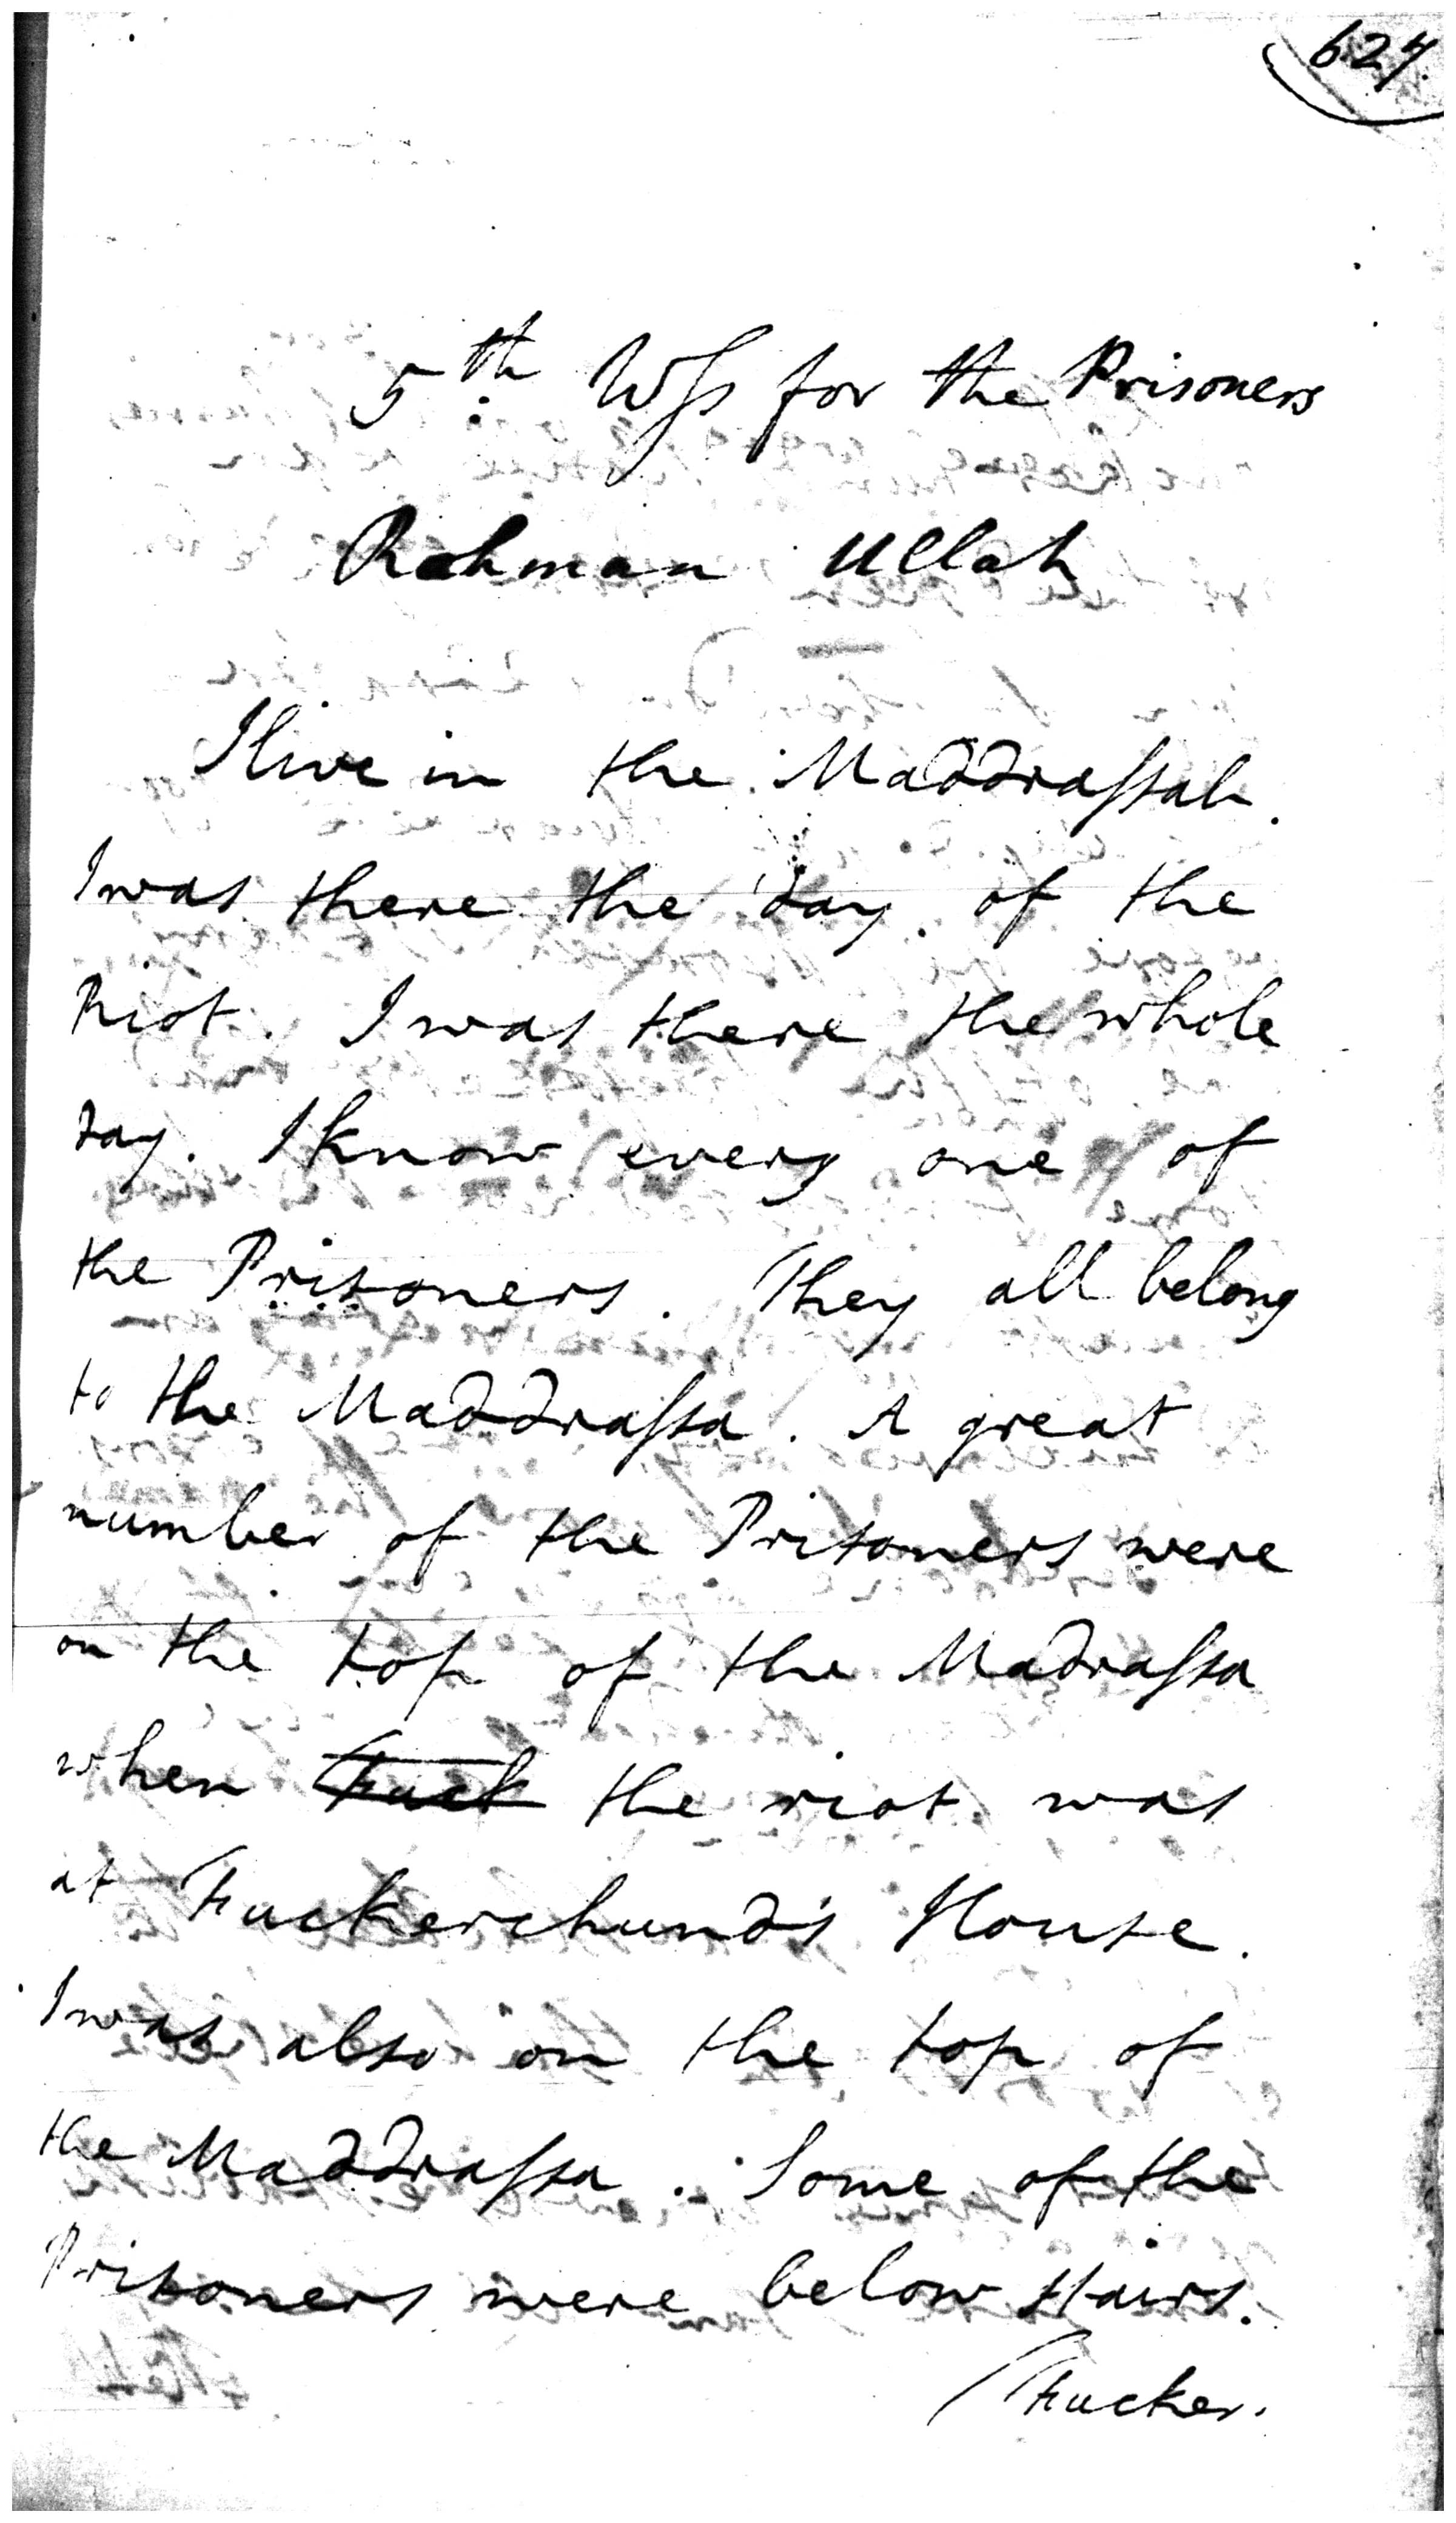 627.
5th Wss for the Prisoners
Rahman Ullah
I live in the Maddrassah.
I was there the day of the
Riot. I was there the whole
day. I know every one of
the Prisoners. They all belong
to the Maddrassa. A great
number of the Prisoners were
on the top of the Madrassa
when Fuck the riot was
at Fuckerchund's House.
I was also on the top of
the Maddrassa. Some of the
Prisoners were below stairs.
Fucker.